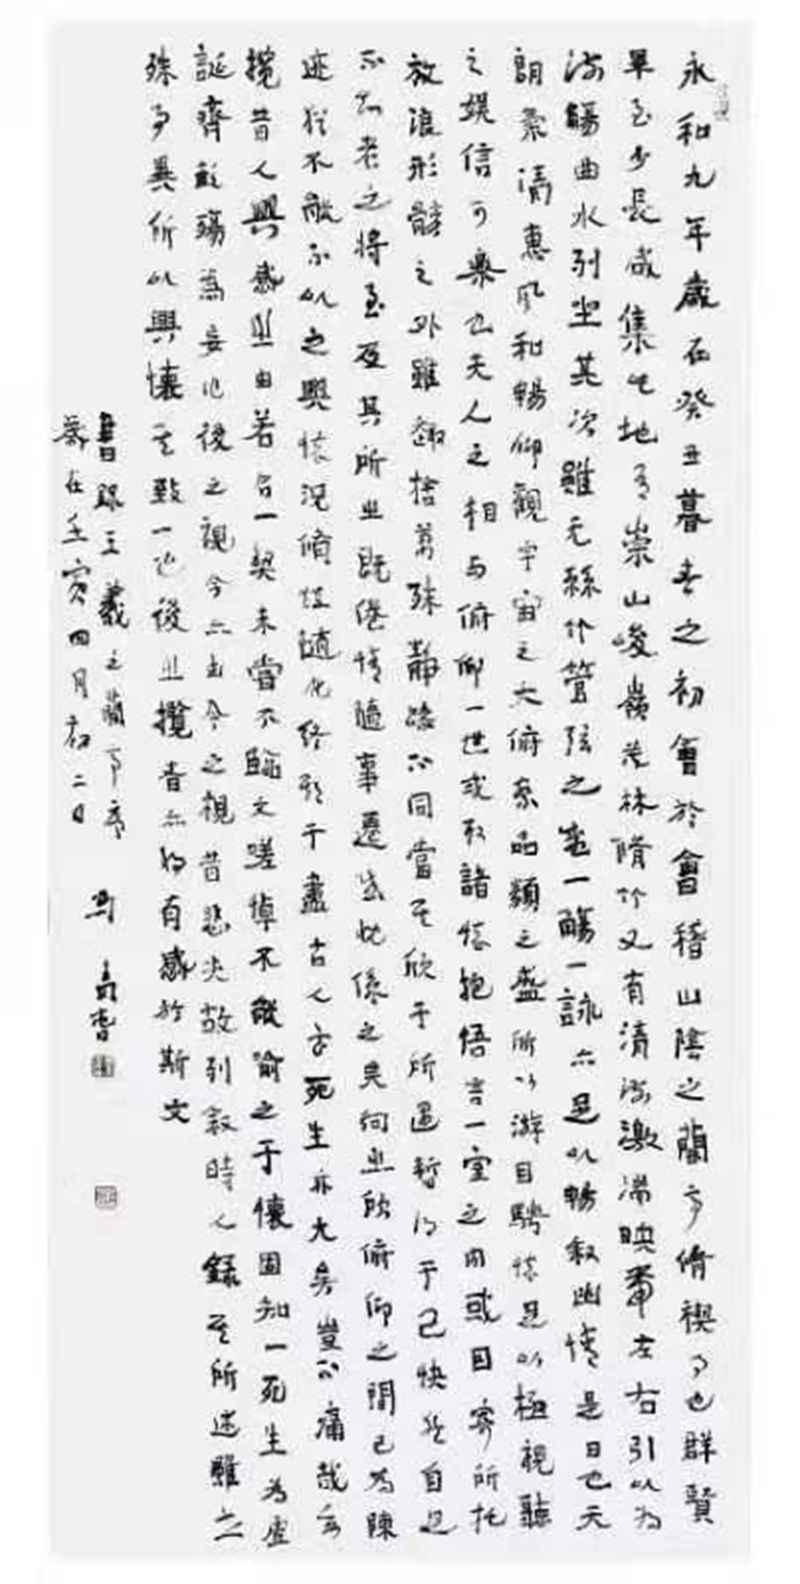 永和九年歲在癸丑暮春之初會於會稽山陰之蘭亭脩禊事也群賢
畢至少長咸集此地有崇山峻嶺茂林脩竹又有清流激湍映帶左右引以為
流觴曲水列坐其次雖無絲竹管弦之盛一觴一詠亦足以暢敘幽情是日也天
朗氣清惠風和暢仰觀宇宙之大俯察品類之盛所以游目騁懷足以極視聽
之娛信可樂也夫人之相與俯仰一世或取諸懷抱悟言一室之內或因寄所托
放浪形骸之外雖趣捨萬殊靜躁不同當其欣于所遇暫得于己快然自足
不知老之將至及其所之既倦情隨事遷感慨係之矣向之所欣俯仰之間已為陳
迹猶不能不以之興懷況脩短隨化終期于盡古人云死生亦大矣豈不痛哉每
攬昔人興感之由若合一契未嘗不臨文嗟悼不能喻之于懷固知一死生為虛
誕齊彭殤為妄作後之視今亦由今之視昔悲夫故列敘時人錄其所述雖世
殊事異所以興懷其致一也後之攬者亦將有感於斯文
書錄王羲之蘭亭序
歲在壬寅四月初二日